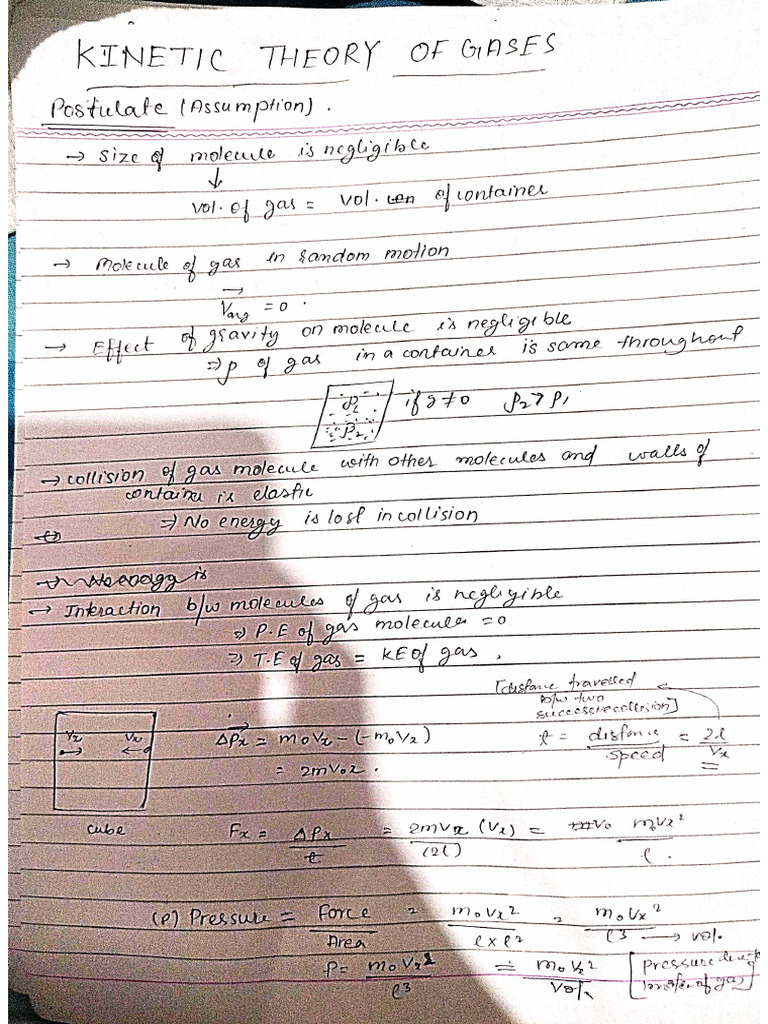 KINETIC THEORY OF GASES
Postulate (Assumption).
→ Size of molecule is negligible
↓
vol. of gas = vol. of container
→ Molecule of gas in random motion
V⃗avg = 0.
→ Effect of gravity on molecule is negligible
⇒ ρ of gas in a container is same throughout
ρ1
ρ2
if g ≠ 0 ρ2 > ρ1
→ collision of gas molecule with other molecules and walls of
container is elastic
⇒ No energy is lost in collision
→ Interaction b/w molecules of gas is negligible
⇒ P.E of gas molecules = 0
⇒ T.E of gas = KE of gas.
[distance travelled
b/w two
successive collision]
Vx Vx
cube
ΔPx = m0Vx - (-m0Vx)
t = distance / speed = 2l / Vx
= 2mV0x.
Fx = ΔPx / t = 2mVx (Vx) / (2l) = m0Vx² / l.
(P) Pressure = Force / Area = m0Vx² / l×l² = m0Vx² / l³ → vol.
P = m0Vx² / l³ = m0Vx² / Vol.
[Pressure
of gas]